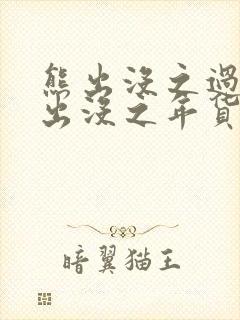 熊出没之过
出没之年货
暗翼猫王